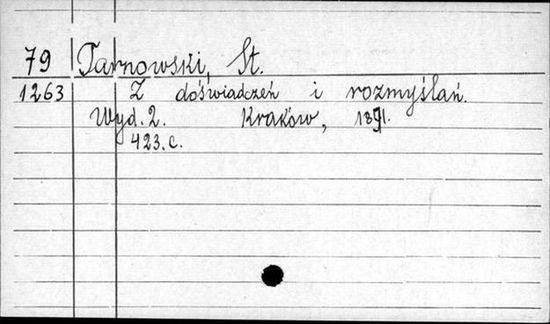 79 Tarnowski, St.
1263 Z doświadczeń i rozmyślań.
Wyd. 2. Kraków, 1891.
423.c.